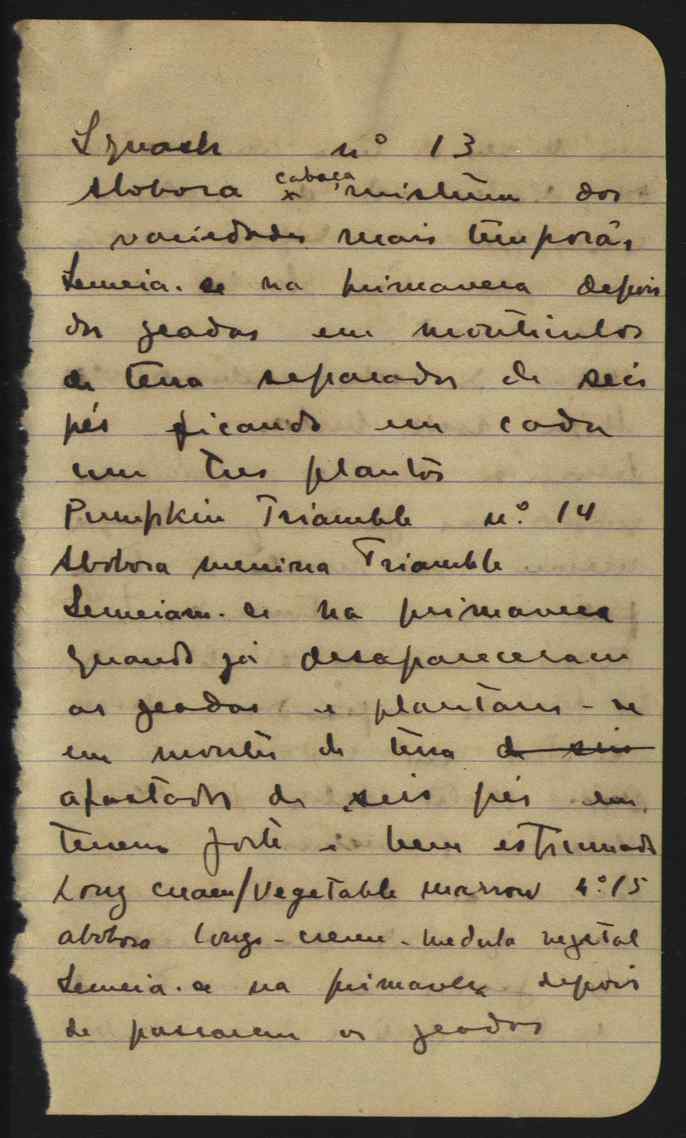 Squash nº 13
Abobora cabaça, mistura das
variedades mais temporãs
Semeia-se na primavera depois
das geadas em monticulos
de terra separados de seis
pés ficando em cada
um tres plantas
Pumpkin Triamble nº 14
Abobora menina Triamble
Semeiam-se na primavera
quando já desapareceram
as geadas e plantam-se
em montes de terra de seis
afastados de seis pés em
terreno forte e bem estrumado
Long cream/Vegetable marrow nº 15
abobora longo-creme-medula vegetal
Semeia-se na primavera depois
de passarem as geadas